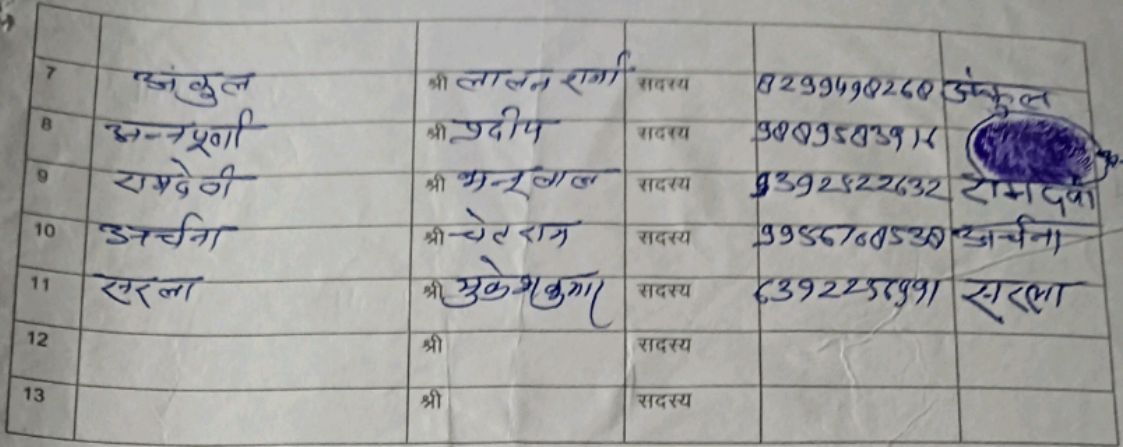 7 अंकुल श्री लालन शर्मा सदस्य 8299498268 अंकुल
8 अन्नपूर्णा श्री प्रदीप सदस्य 9889583916
9 रामदेवी श्री सदस्य 9392822632 रामदेवी
10 अर्चना श्री चेतराम सदस्य 9956768538 अर्चना
11 सरला श्री मुकेश कुमार सदस्य 6392256991 सरला
12 श्री सदस्य
13 श्री सदस्य